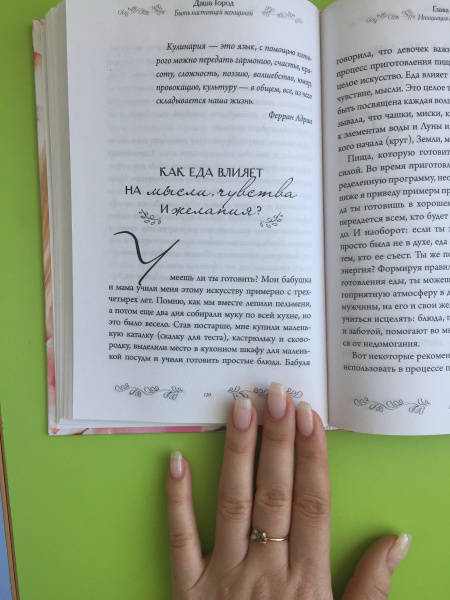 Даша Город
Быть настоящей женщиной
Кулинария — это язык, с помощью кото-
рого можно передать гармонию, счастье, кра-
соту, сложность, поэзию, волшебство, юмор,
провокацию, культуру — в общем, все, из чего
складывается наша жизнь.
Ферран Адриа
КАК ЕДА ВЛИЯЕТ
НА мысли, чувства
И желания?
Умеешь ли ты готовить? Мои бабушка
и мама учили меня этому искусству примерно с трех-
четырех лет. Помню, как мы вместе лепили пельмени,
а потом еще два дня собирали муку по всей кухне, но
это было весело. Став постарше, мне купили малень-
кую каталку (скалку для теста), кастрюльку и сково-
родку, выделили место в кухонном шкафу для малень-
кой посуды и учили готовить простые блюда. Бабуля
120
Глава
говорила, что девочек важ
процесс приготовления пищ
целое искусство. Еда влияет
чувствие, мысли. Это целое т
быть посвящена каждая волы
зывала, что чашки, миски, к
к элементам воды и Луны и
кого начала (круг), Земли, м
Пища, которую готовит
силой. Во время приготовл
ределенную программу, нео
ниже я приведу примеры пр
да ты готовишь в хорошем
передается всем, кто будет
до. И наоборот: если ты з
просто была не в духе, еда
тем, кто ее съест. Ты же по
энергия? Формируя правил
готовления еды, ты можеш
гоприятную атмосферу в д
мужчины, на его и свои же
учиться исцелять: блюда, п
и заботой, помогают во мн
ся от недомогания.
Вот некоторые рекомен
использовать в процессе п